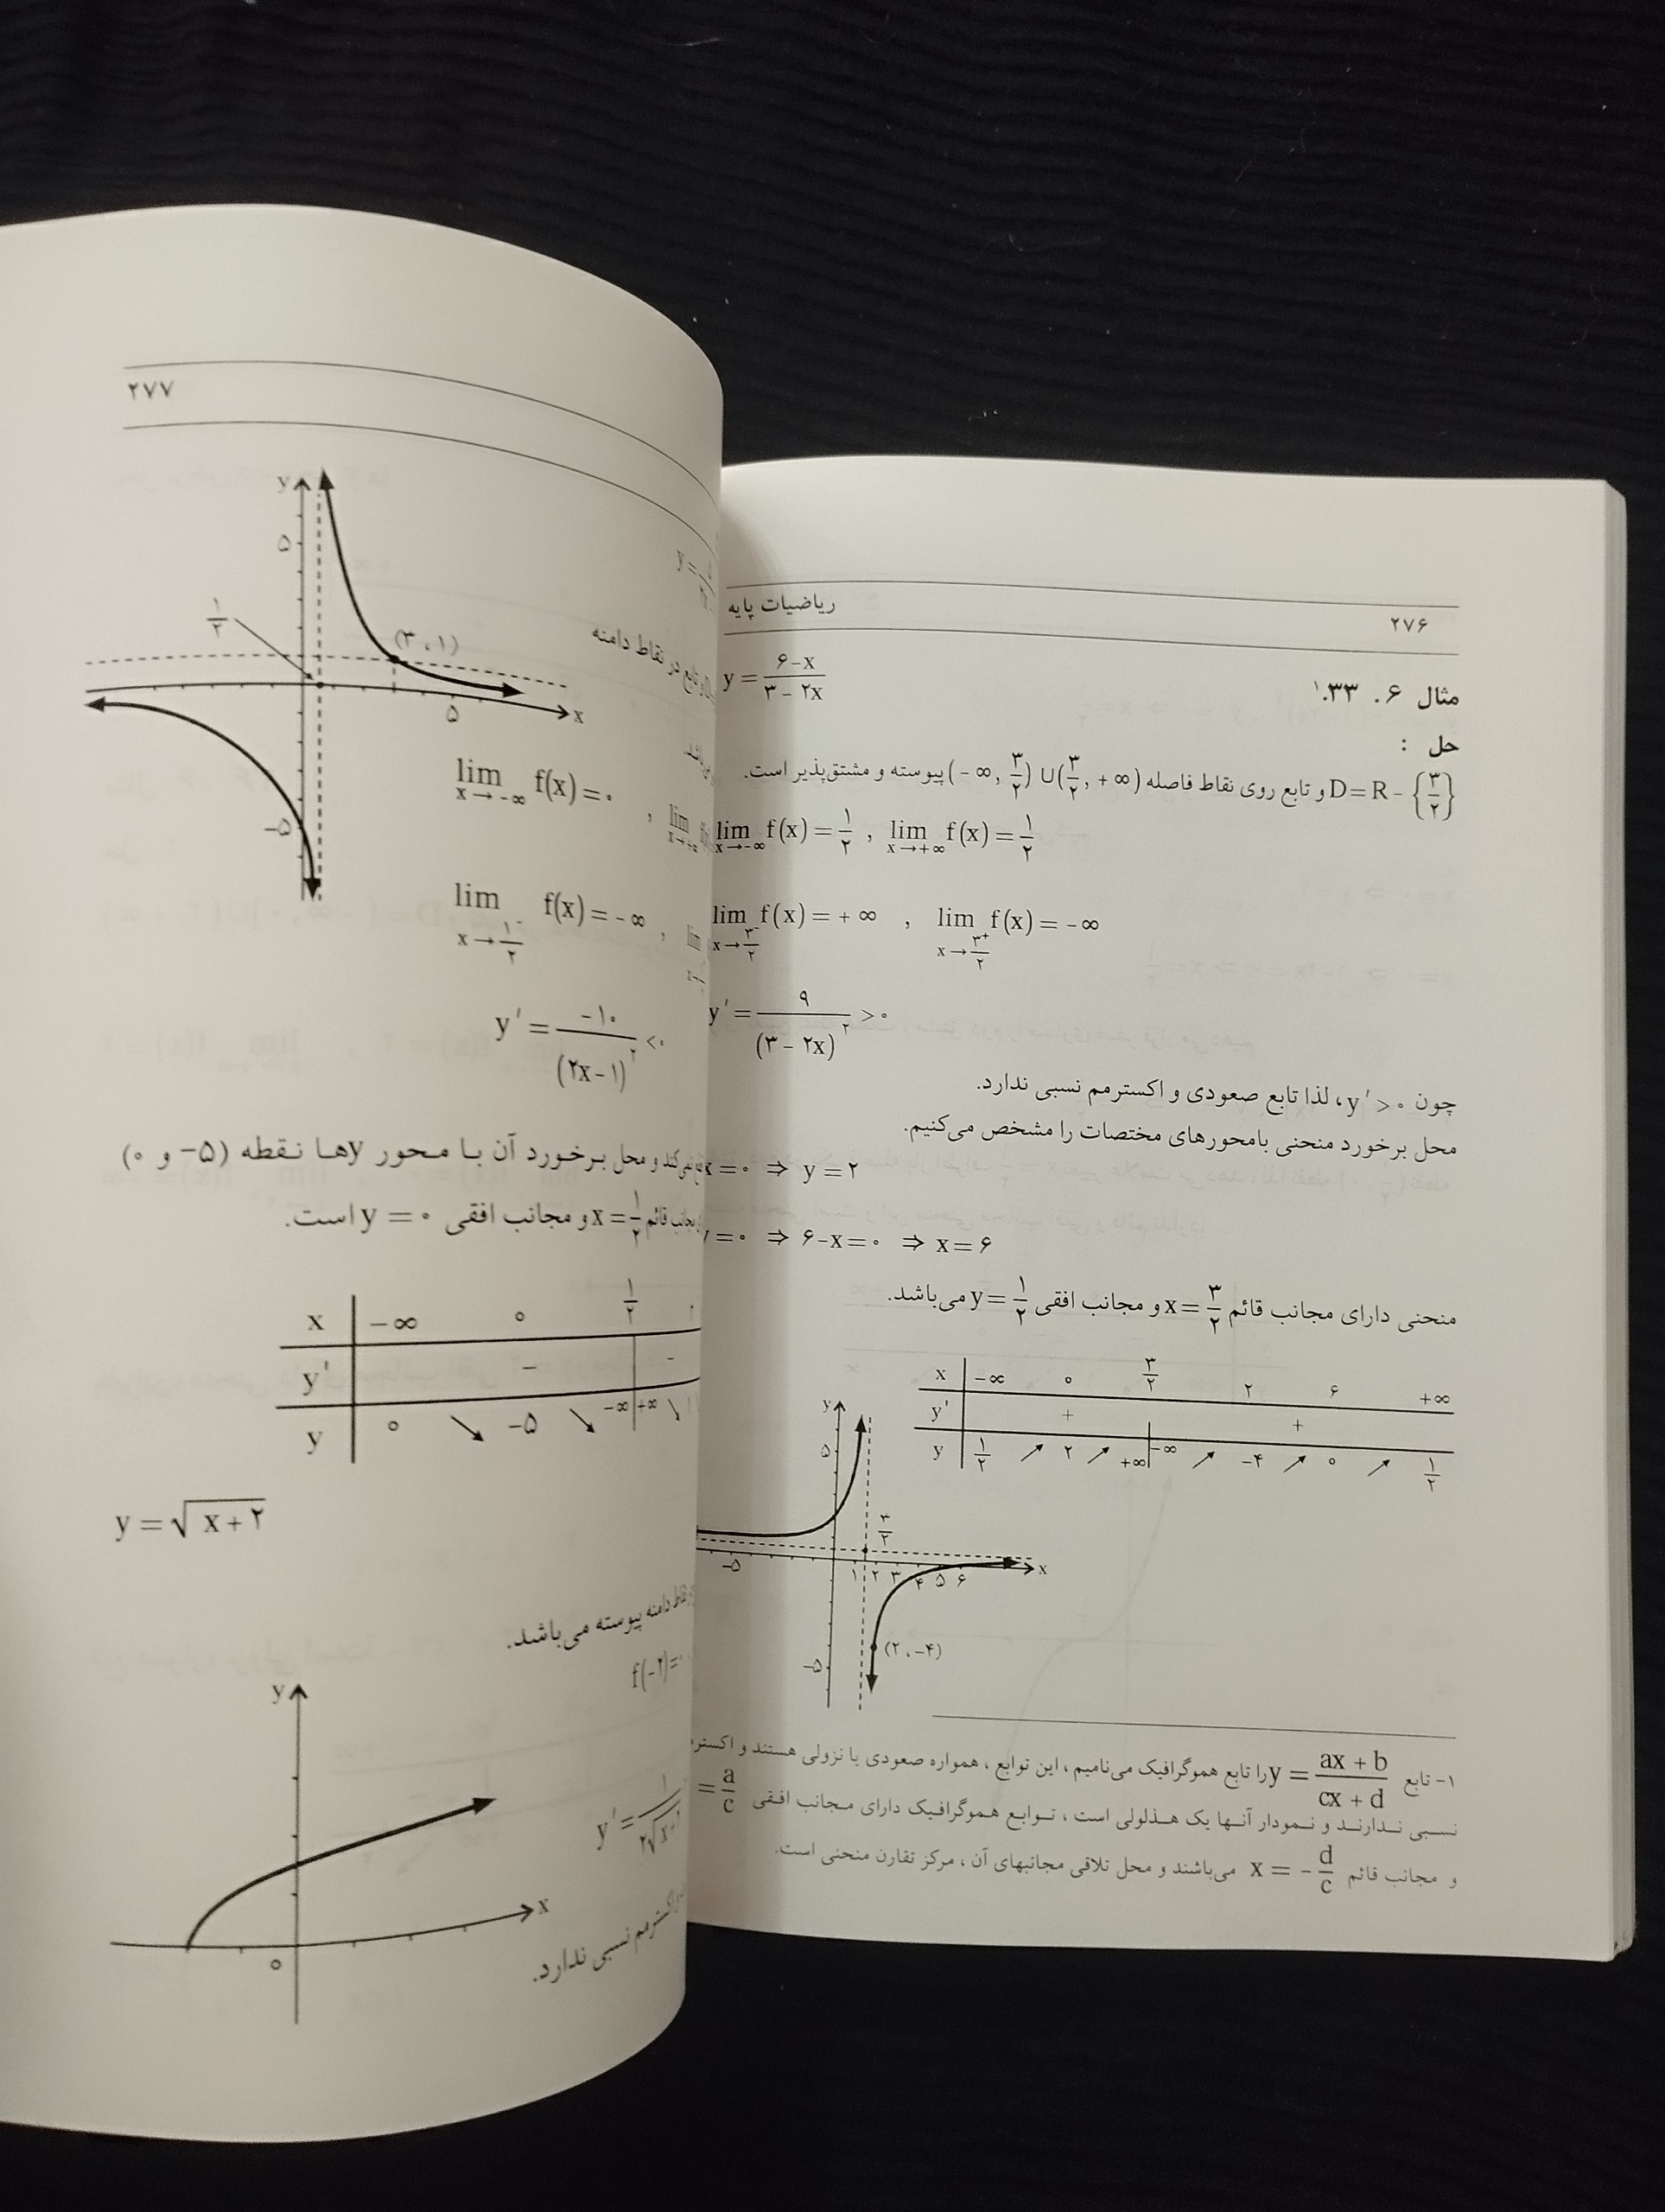 ریاضیات پایه ۲۷۶
مثال ۶ . ۳۳.۱ y = (۶-x)/(۳-۲x)
حل :
D = R - {۳/۲} و تابع روی نقاط فاصله (-∞, ۳/۲) ∪ (۳/۲, +∞) پیوسته و مشتق‌پذیر است.
lim x→-∞ f(x) = ۱/۲ , lim x→+∞ f(x) = ۱/۲
lim x→۳⁻/۲ f(x) = +∞ , lim x→۳⁺/۲ f(x) = -∞
y' = ۹/(۳-۲x)^۲ > ۰
چون y' > ۰، لذا تابع صعودی و اکسترمم نسبی ندارد.
محل برخورد منحنی بامحورهای مختصات را مشخص می‌کنیم.
x = ۰ ⇒ y = ۲
y = ۰ ⇒ ۶-x = ۰ ⇒ x = ۶
منحنی دارای مجانب قائم x = ۳/۲ و مجانب افقی y = ۱/۲ می‌باشد.
x -∞ ۰ ۳/۲ ۲ ۶ +∞
y' + +
y ۱/۲ ↗ ۲ ↗ +∞ -∞ ↗ -۴ ↗ ۰ ↗ ۱/۲
y
۵
۳/۲
-۵ ۱ ۲ ۳ ۴ ۵ ۶ x
(۲ ، -۴)
-۵
۱- تابع y = (ax + b)/(cx + d) را تابع هموگرافیک می‌نامیم ، این توابع ، همواره صعودی یا نزولی هستند و
نسبی ندارند و نمودار آنها یک هذلولی است ، توابع هموگرافیک دارای مجانب افقی = a/c
و مجانب قائم x = -d/c می‌باشند و محل تلاقی مجانبهای آن ، مرکز تقارن منحنی است.
۲۷۷
y
۵
۱/۲
(۳ ، ۱)
۵ x
-۵
در نقاط دامنه
lim x→-∞ f(x) = ۰ ,
lim x→۱⁻/۲ f(x) = -∞ ,
y' = -۱۰/(۲x-۱)^۲ < ۰
و محل برخورد آن با محور yها نقطه (۵- و ۰)
مجانب قائم x = ۱/۲ و مجانب افقی y = ۰ است.
x -∞ ۰ ۱/۲
y' - -
y ۰ ↘ -۵ ↘ -∞ +∞ ↘
y = √(x+۲)
دامنه پیوسته می‌باشد.
f(-۲)=
y' = ۱/
اکسترمم نسبی ندارد.
y
x
۰